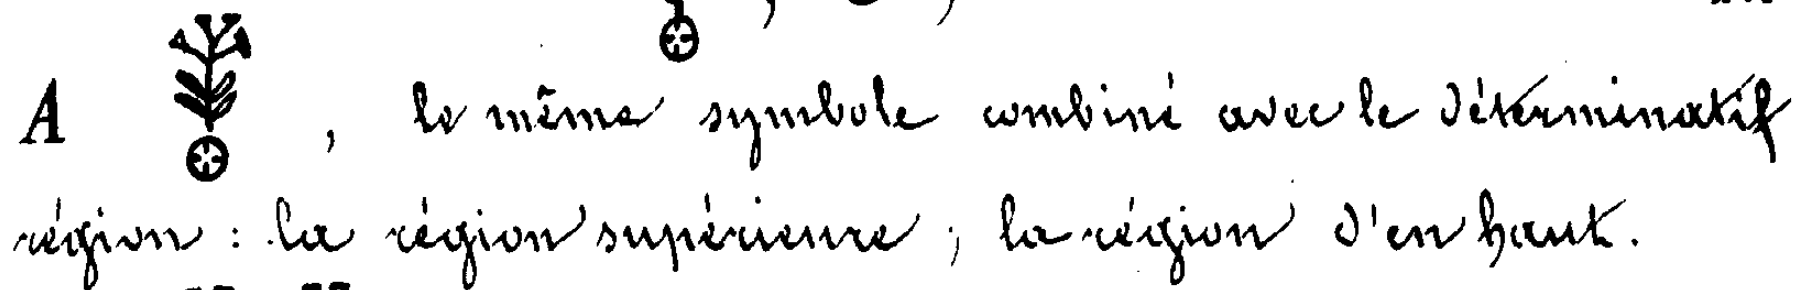 A , le même symbole combiné avec le déterminatif
région : la région supérieure ; la région d'en haut.